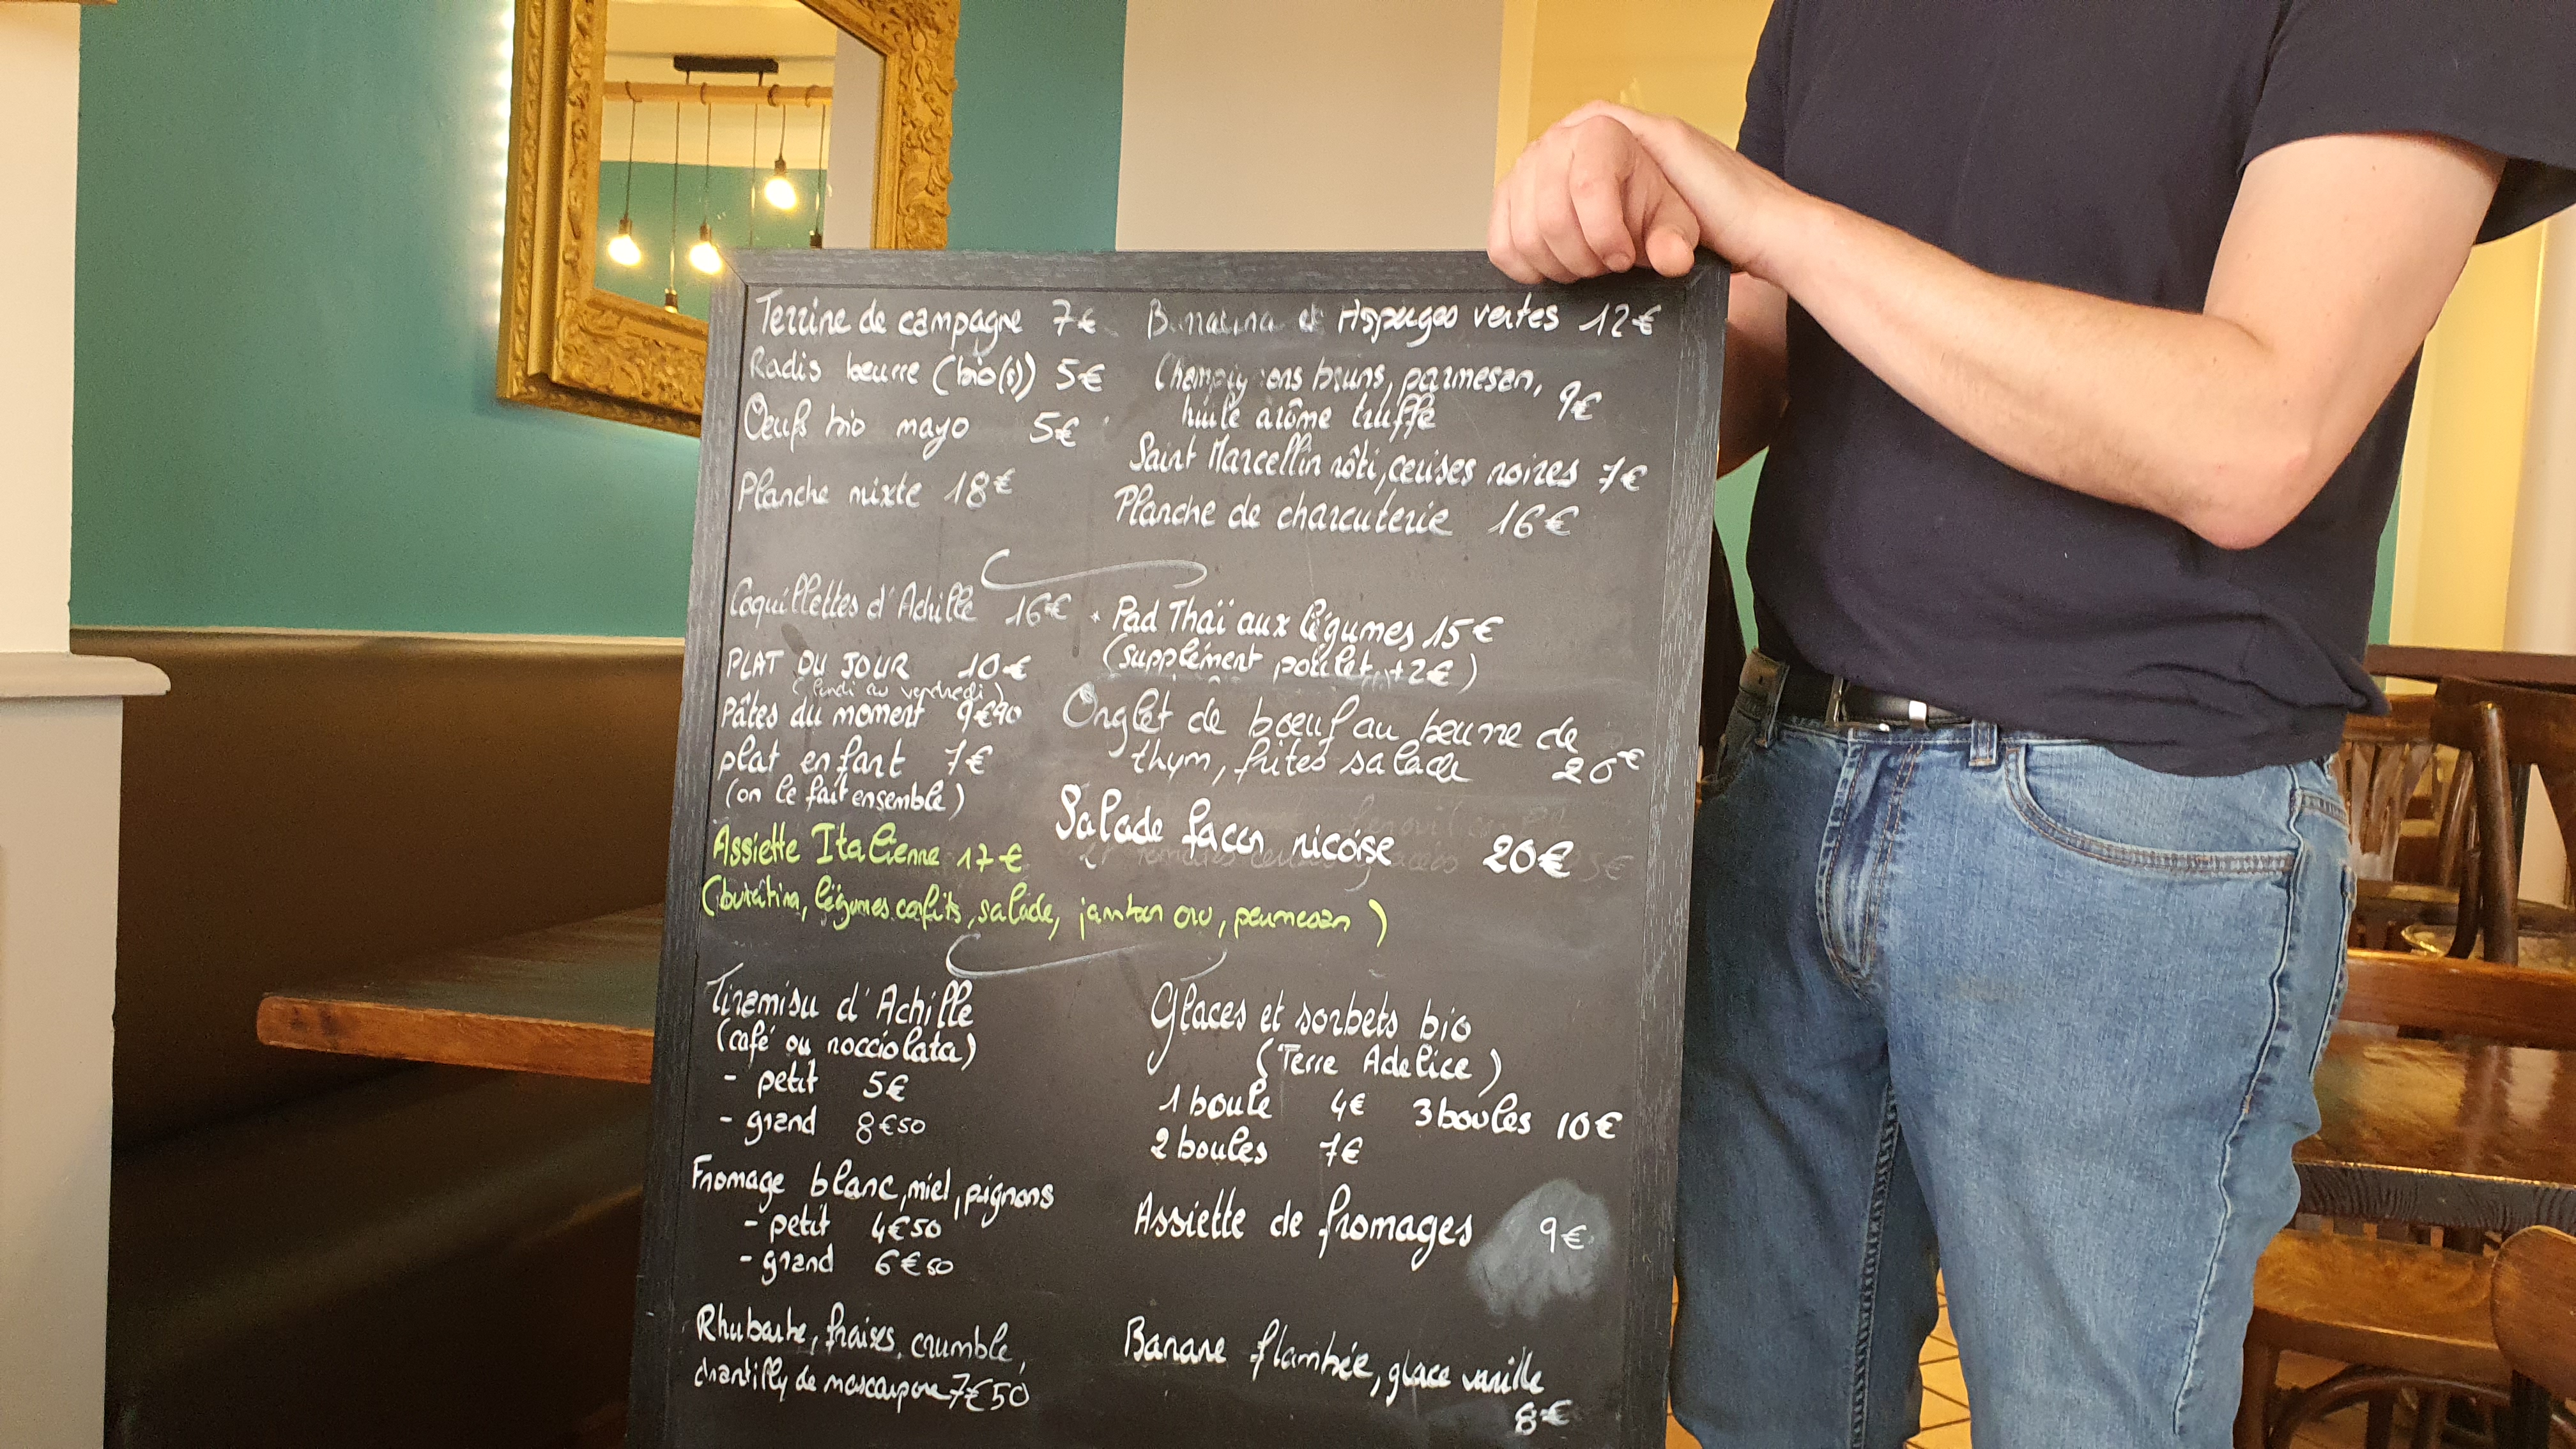 Terrine de campagne 7€
Radis beurre (bio(s)) 5€
Oeufs bio mayo 5€
Planche mixte 18€
et Asperges vertes 12€
bruns, parmesan,
huile arôme truffe 9€
Saint Marcellin rôti, cerises noires 7€
Planche de charcuterie 16€
Coquillettes d'Achille 16€
PLAT DU JOUR 10€
(lundi au vendredi)
Pâtes du moment 9€90
plat enfant 7€
(on le fait ensemble)
Pad Thaï aux légumes 15€
(supplément poulet +2€)
Onglet de bœuf au beurre de
thym, frites salade €
Salade façon niçoise 20€
Assiette Italienne 17€
(buratina, légumes confits, salade, jambon cru, parmesan)
Tiramisu d'Achille
(café ou nocciolata)
- petit 5€
- grand 8€50
Fromage blanc, miel, pignons
- petit 4€50
- grand 6€50
Rhubarbe, fraises, crumble,
chantilly de mascarpone 7€50
Glaces et sorbets bio
(Terre Adelice)
1 boule 4€ 3 boules 10€
2 boules 7€
Assiette de fromages 9€
Banane flambée, glace vanille
8€